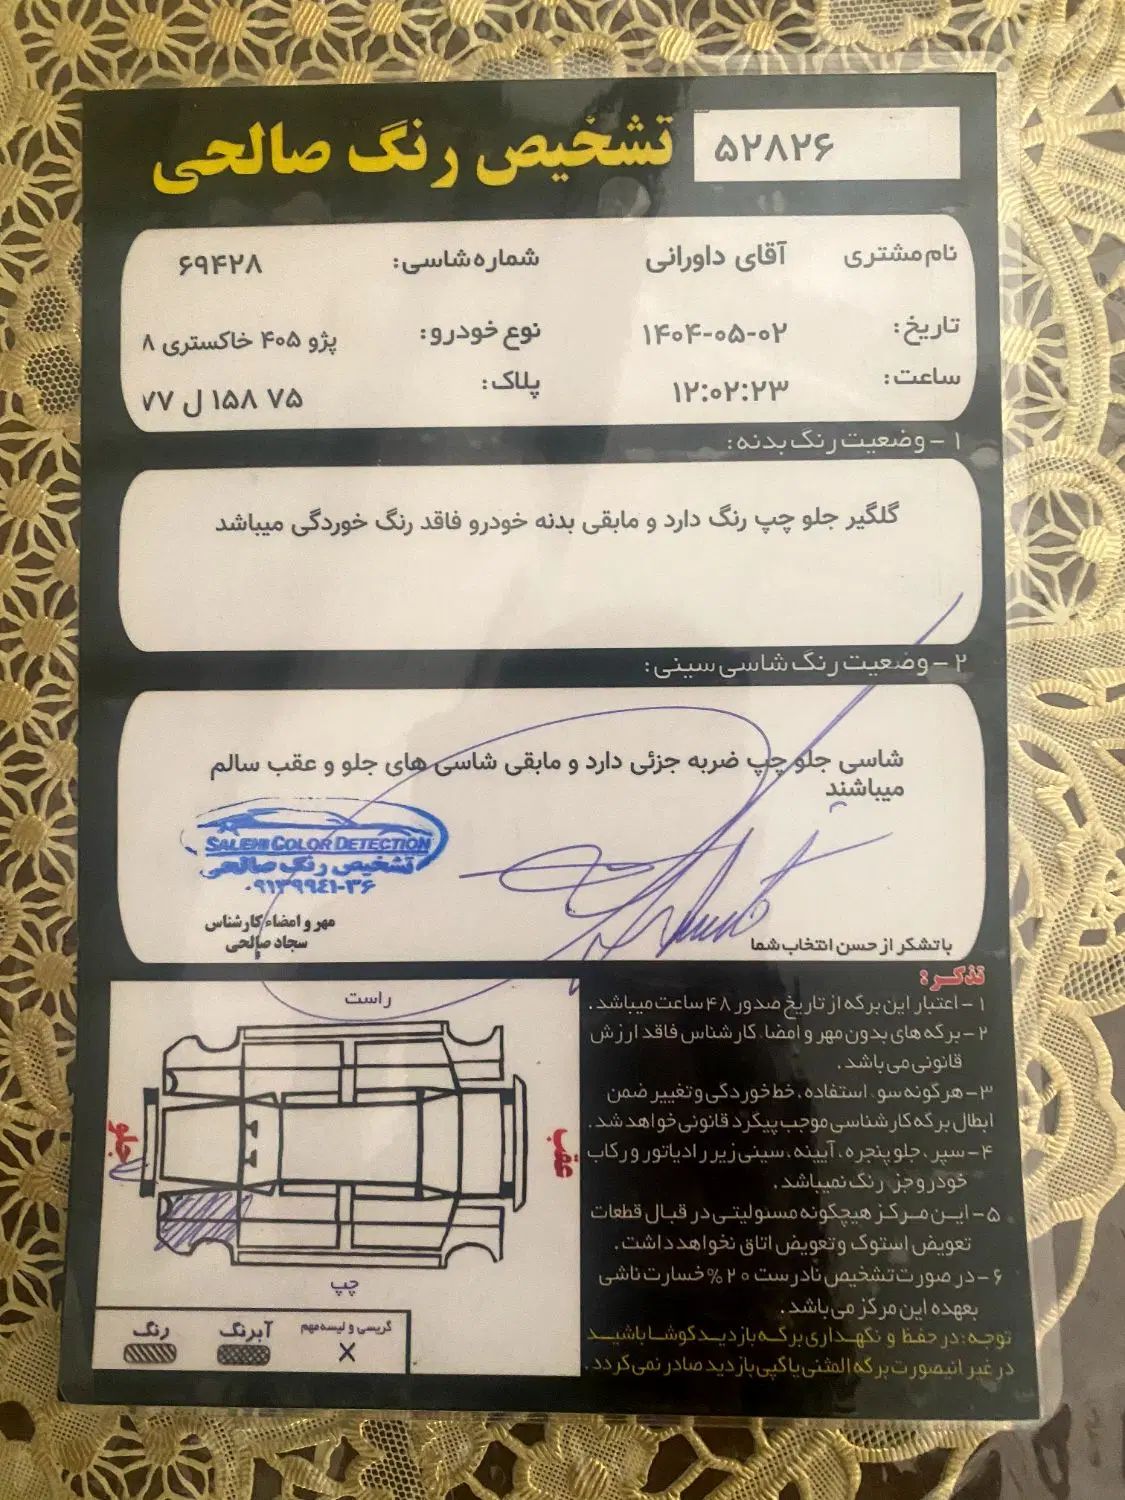 تشخیص رنگ صالحی
۵۲۸۲۶
نام مشتری آقای داورانی
شماره شاسی: ۶۹۴۲۸
تاریخ: ۱۴۰۴-۰۵-۰۲
نوع خودرو: پژو ۴۰۵ خاکستری ۸
ساعت: ۱۲:۰۲:۲۳
پلاک: ۷۵ ۱۵۸ ل ۷۷
۱ - وضعیت رنگ بدنه:
گلگیر جلو چپ رنگ دارد و مابقی بدنه خودرو فاقد رنگ خوردگی میباشد
۲ - وضعیت رنگ شاسی سینی:
شاسی جلو چپ ضربه جزئی دارد و مابقی شاسی های جلو و عقب سالم
میباشند
SALEHI COLOR DETECTION
تشخیص رنگ صالحی
۰۹۱۳۹۹۴۱۰۳۶
مهر و امضاء کارشناس
سجاد صالحی
با تشکر از حسن انتخاب شما
تذکر:
۱- اعتبار این برگه از تاریخ صدور ۴۸ ساعت میباشد.
۲- برگه های بدون مهر و امضاء کارشناس فاقد ارزش
قانونی می باشد.
۳- هرگونه سوء استفاده، خط خوردگی و تغییر ضمن
ابطال برگه کارشناسی موجب پیگرد قانونی خواهد شد.
۴- سپر، جلو پنجره، آیینه، سینی زیر رادیاتور و رکاب
خودرو جزء رنگ نمیباشد.
۵- این مرکز هیچگونه مسئولیتی در قبال قطعات
تعویض استوک و تعویض اتاق نخواهد داشت.
۶- در صورت تشخیص نادرست ۲۰% خسارت ناشی
بعهده این مرکز می باشد.
توجه: در حفظ و نگهداری برگه بازدید کوشا باشید
در غیر اینصورت برگه المثنی یا کپی بازدید صادر نمی گردد.
راست
جلو
عقب
چپ
رنگ
آبرنگ
گریسی و لیسه مهم
X